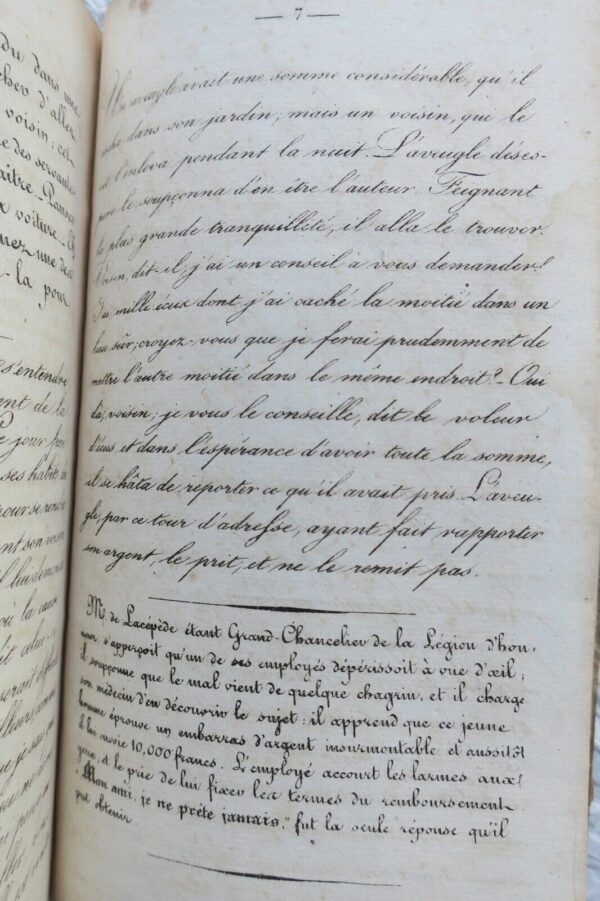 du dans une
cher d'aller
voisin; cet
e des servantes
aître.
x voiture.
nez une de
la pour
s'entendre
ent de la
jour
ses habits
pour se rendre
nt son voisin
la cause
serait
— 7 —
Un aveugle avait une somme considérable, qu'il
cacha dans son jardin; mais un voisin, qui le
vit l'enleva pendant la nuit. L'aveugle déses-
péré le soupçonna d'en être l'auteur. Feignant
la plus grande tranquilleté, il alla le trouver.
Voisin, dit-il; j'ai un conseil à vous demander!
J'ai mille écus dont j'ai caché la moitié dans un
lieu sûr; croyez-vous que je ferai prudemment de
mettre l'autre moitié dans le même endroit? — Oui
da, voisin; je vous le conseille, dit le voleur
d'écus et dans l'espérance d'avoir toute la somme,
il se hâta de reporter ce qu'il avait pris. L'aveu-
gle, par ce tour d'adresse, ayant fait rapporter
son argent, le prit, et ne le remit pas.
Mr de Lacépède étant Grand-Chancelier de la Légion d'hon-
neur, s'apperçoit qu'un de ses employés dépérissoit à vue d'œil;
il soupçonne que le mal vient de quelque chagrin, et il charge
son médecin d'en découvrir le sujet: il apprend que ce jeune
homme éprouve un embarras d'argent insurmontable et aussitôt
il lui envoie 10,000 francs. L'employé accourt les larmes aux
yeux, et le prie de lui fixer les termes du remboursement.
"Mon ami, je ne prête jamais," fut la seule réponse qu'il
put obtenir.